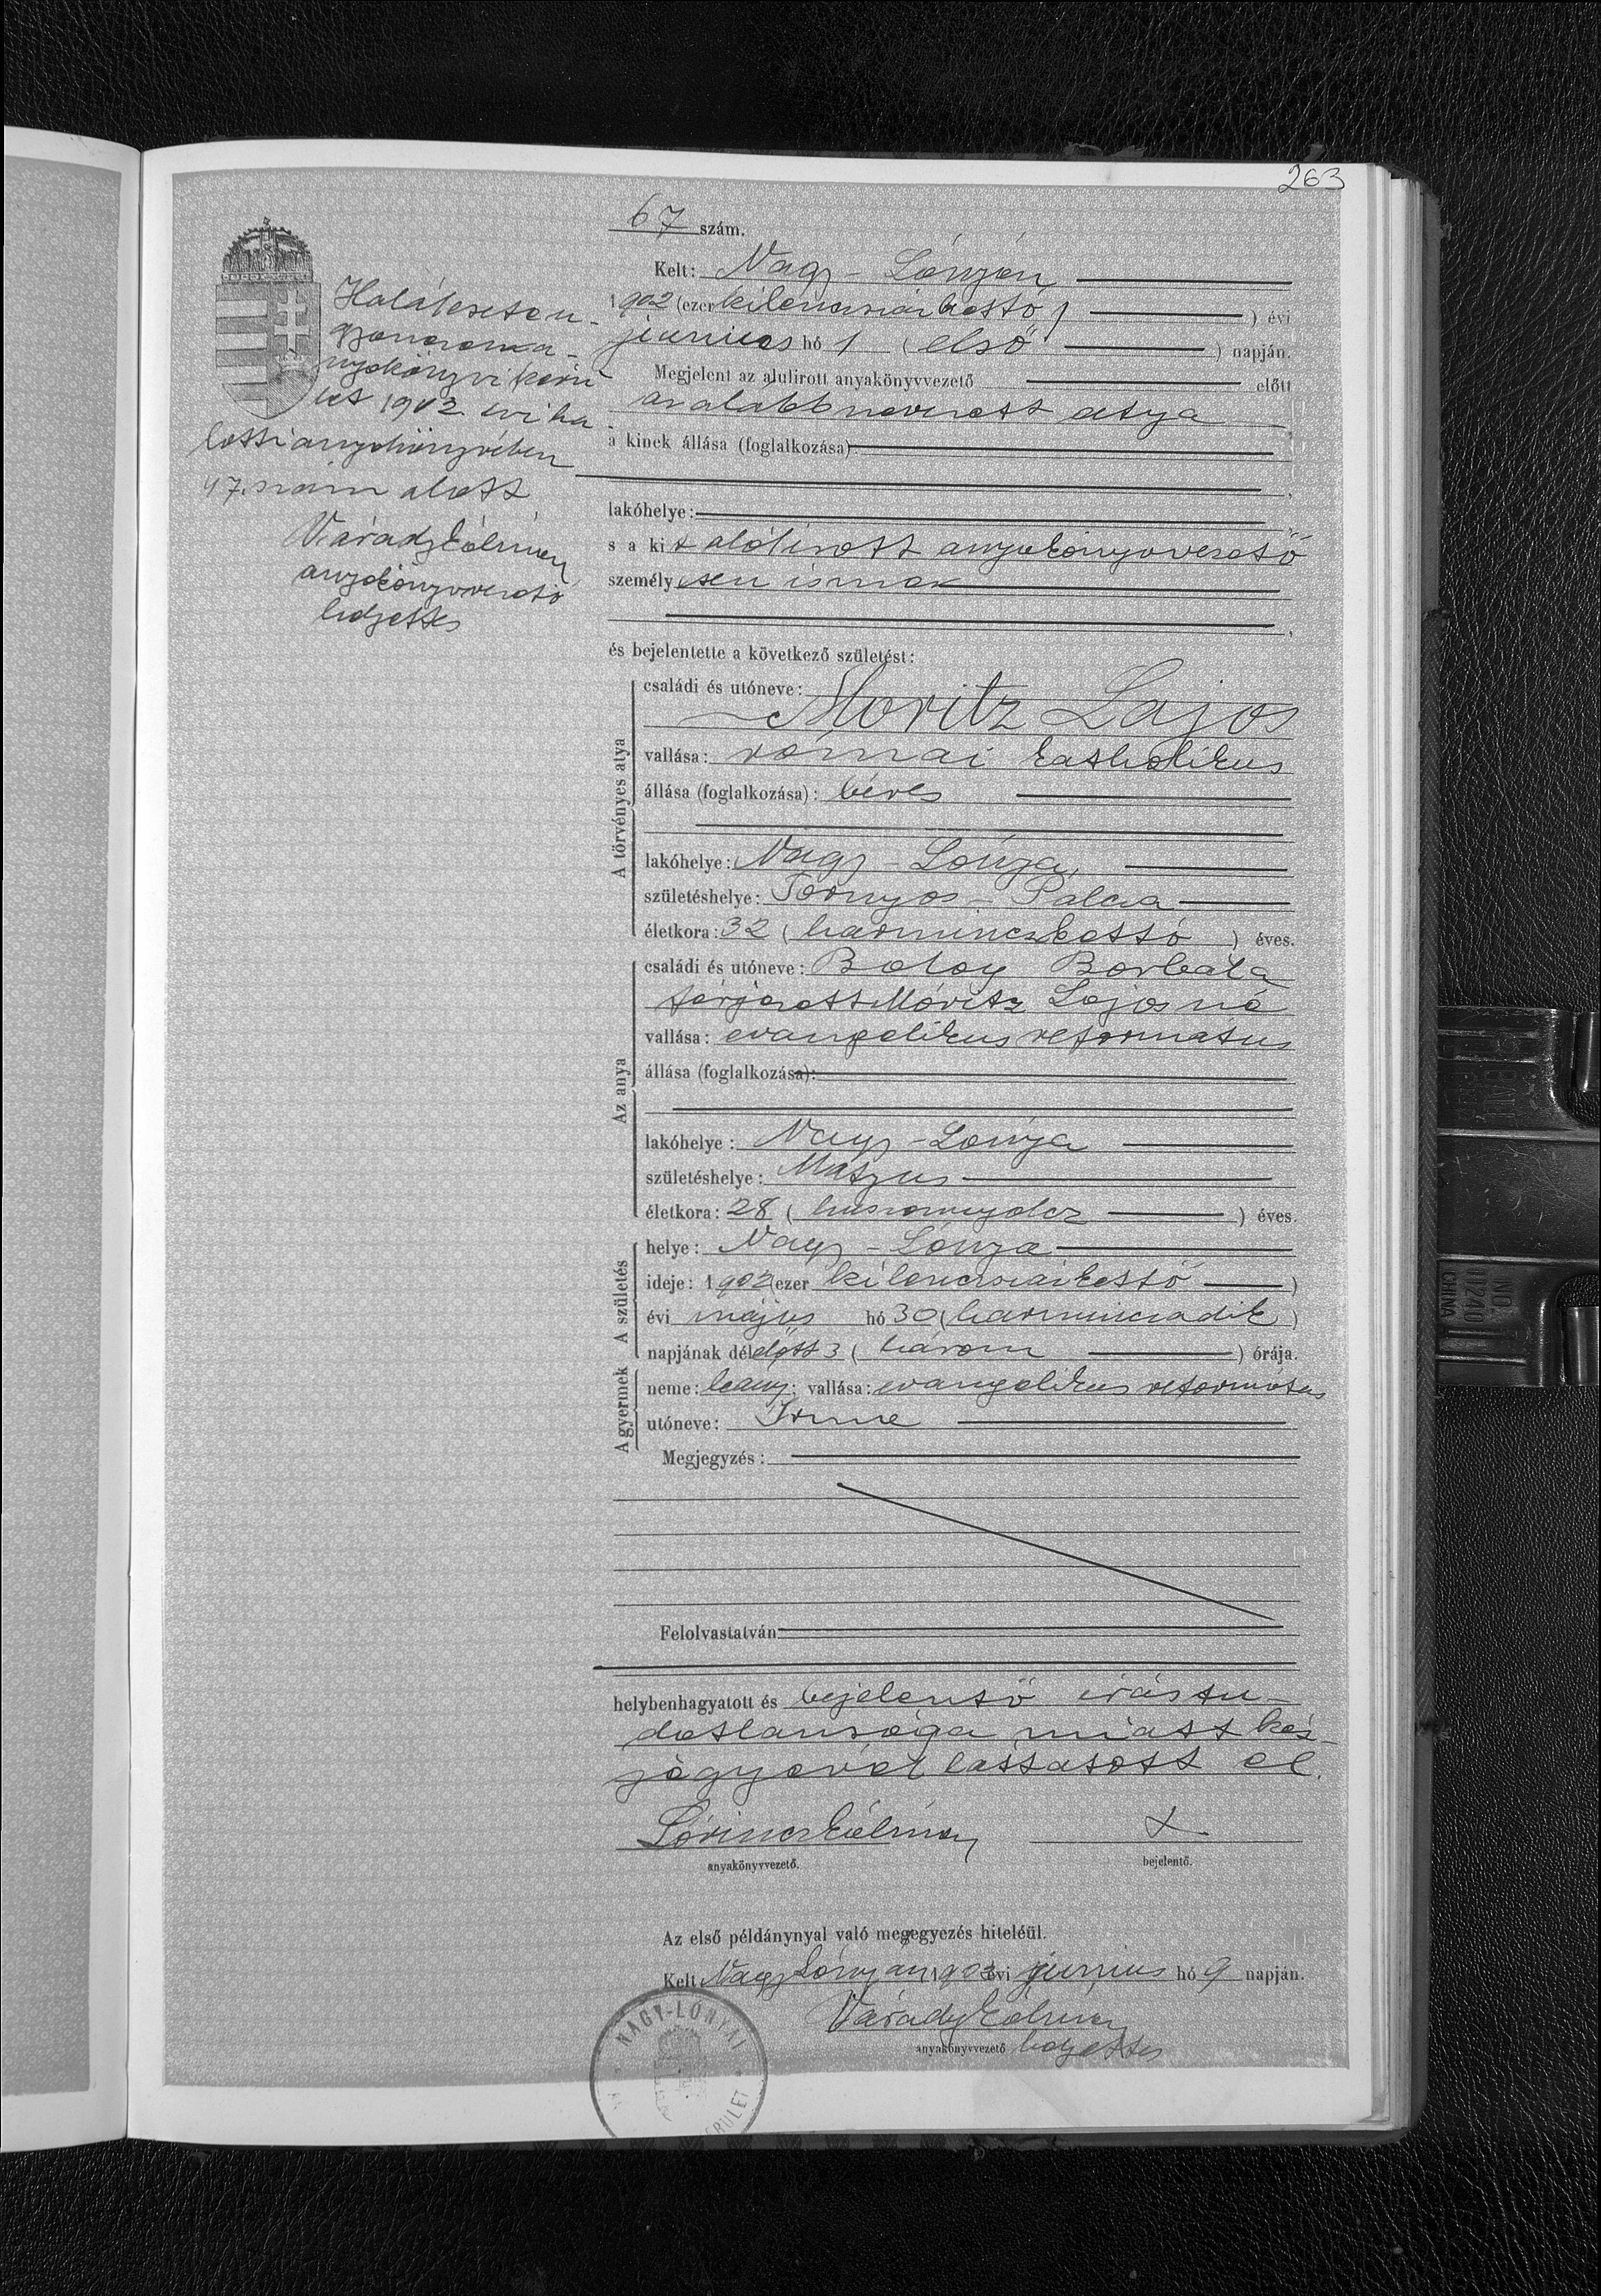 263
67 szám.
Kelt: Nagy-Lónyán
1902 (ezer kilenczszázkettő) évi
junius hó 1 (első) napján.
Megjelent az alulirott anyakönyvvezető előtt
az alább nevezett atya
a kinek állása (foglalkozása)
lakóhelye:
s a kit alólirott anyakönyvvezető
személyesen ismer
és bejelentette a következő születést:
A törvényes atya
családi és utóneve:
Moritz Lajos
vallása: római katholikus
állása (foglalkozása): béres
lakóhelye: Nagy-Lónya,
születéshelye: Tornyos-Pálcza
életkora: 32 (harminczkettő) éves.
Az anya
családi és utóneve: Borbála
férjezett Móritz Lajosné
vallása: evangelikus reformatus
állása (foglalkozása):
lakóhelye: Nagy-Lónya
születéshelye: Mátyus
életkora: 28 (huszonnyolcz) éves.
A születés
helye: Nagy-Lónya
ideje: 1902 (ezer kilenczszázkettő)
évi május hó 30 (harminczadik)
napjának délelőtt 3 (három) órája.
A gyermek
neme: leány; vallása: evangelikus reformatus
utóneve: Irma
Megjegyzés:
Felolvastatván
helybenhagyatott és bejelentő irástu-
datlansága miatt kéz-
jegyével láttatott el.
Lőrincz Kálmán
anyakönyvvezető.
x
bejelentő.
Az első példánynyal való megegyezés hiteléül.
Kelt Nagy Lónyán, 1903 évi junius hó 9 napján.
Várady Kálmán
anyakönyvvezető helyettes
NAGY-LÓNYAI
Haláleset a
anya-
könyvi kerü-
let 1902. évi ha-
lotti anyakönyvében
47. szám alatt
Várady Kálmán
anyakönyvvezető
helyettes